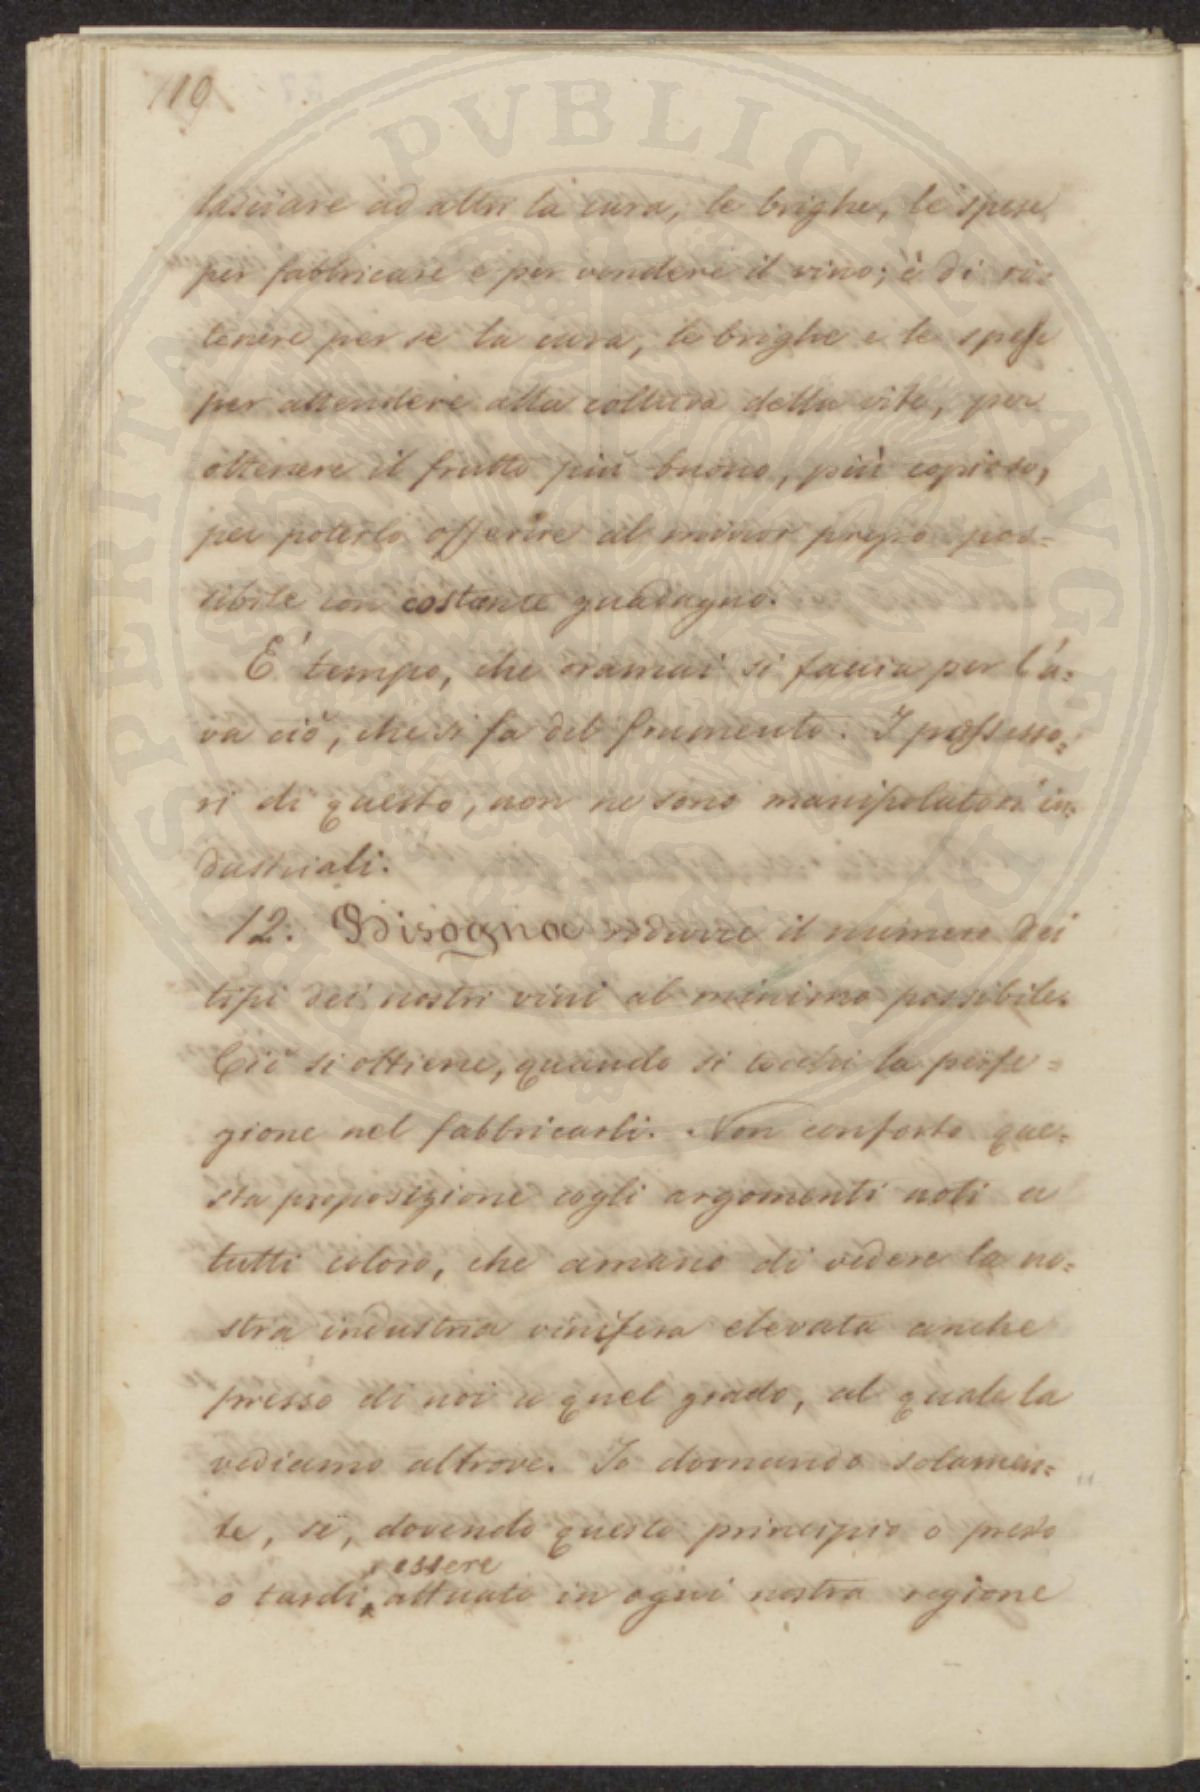 110
lasciare ad altri la cura, le brighe, le spese
per fabbricare e per vendere il vino; è di ri=
tenere per sè la cura, le brighe e le spese
per attendere alla coltura della vite, per
ottenere il frutto più buono, più copioso,
per poterlo offerire al minor prezzo pos=
sibile con costante guadagno.
E' tempo, che oramai si faccia per l'u=
va ciò, che si fa del frumento. I possesso=
ri di questo, non ne sono manipolatori in=
dustriali.
12. Bisogna ridurre il numero dei
tipi dei nostri vini al minimo possibile.
Ciò si ottiene, quando si tocchi la perfe=
zione nel fabbricarli. Non conforto que=
sta proposizione cogli argomenti noti a
tutti coloro, che amano di vedere la no=
stra industria vinifera elevata anche
presso di noi a quel grado, al quale la
vediamo altrove. Io domando solamen=
te, se, dovendo questo principio o presto
o tardi, essere attuato in ogni nostra regione
SPERITATI PVBLICAE AVGENDAE PRO